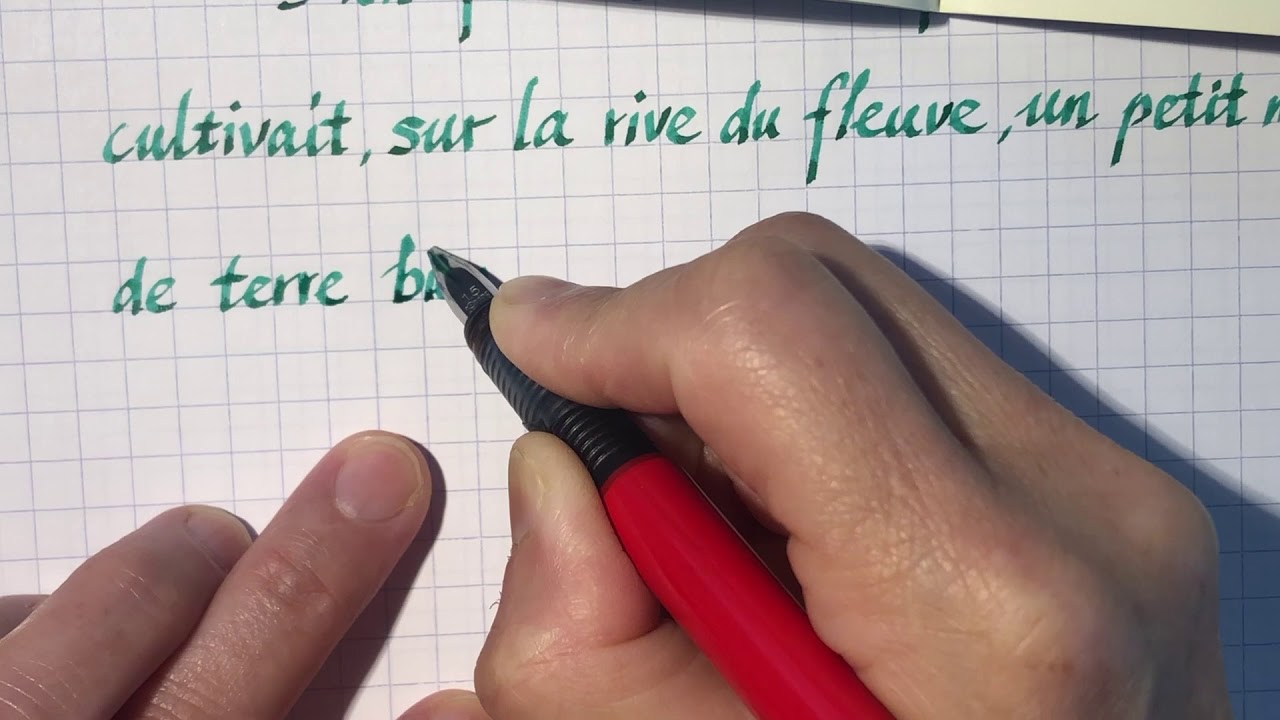 cultivait, sur la rive du fleuve, un petit
de terre